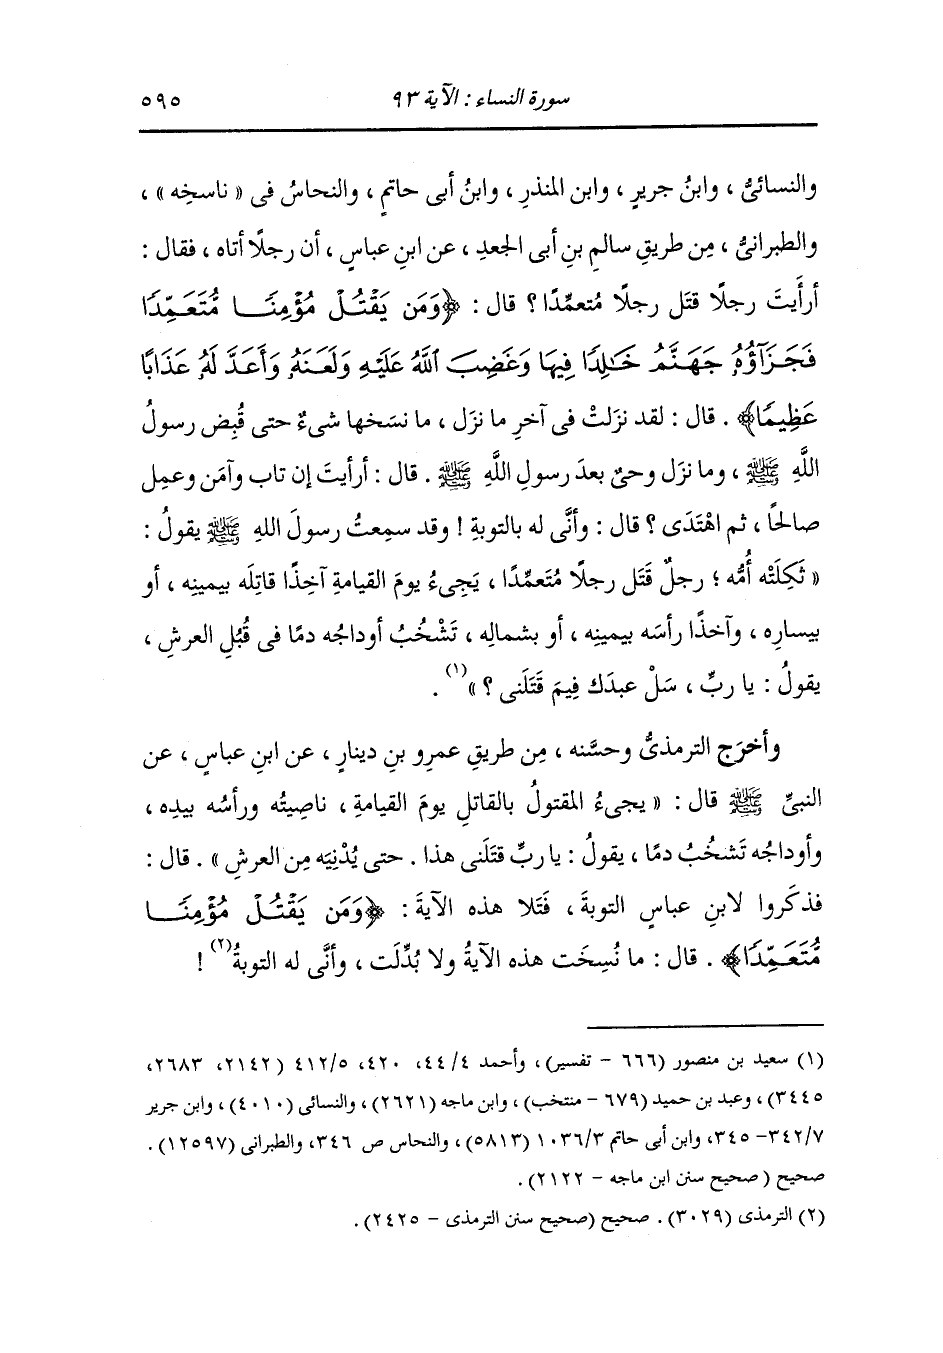 سورة النساء : الآية ٩٣ ٥٩٥
والنسائىُّ ، وابنُ جريرٍ ، وابن المنذرِ ، وابنُ أبى حاتمٍ ، والنحاسُ فى « ناسخِه » ،
والطبرانىُّ ، مِن طريقِ سالمِ بنِ أبى الجعدِ ، عن ابنِ عباسٍ ، أن رجلًا أتاه ، فقال :
أرأَيتَ رجلًا قتَل رجلًا مُتعمِّدًا ؟ قال : ﴿وَمَن يَقْتُلْ مُؤْمِنًا مُّتَعَمِّدًا
فَجَزَآؤُهُۥ جَهَنَّمُ خَٰلِدًا فِيهَا وَغَضِبَ ٱللَّهُ عَلَيْهِ وَلَعَنَهُۥ وَأَعَدَّ لَهُۥ عَذَابًا
عَظِيمًا﴾ . قال : لقد نزَلتْ فى آخرِ ما نزَل ، ما نسَخها شىءٌ حتى قُبِض رسولُ
اللَّهِ ﷺ ، وما نزَل وحىٌ بعدَ رسولِ اللَّهِ ﷺ . قال : أرأيتَ إن تاب وآمَن وعمِل
صالحًا ، ثم اهْتَدَى ؟ قال : وأنَّى له بالتوبةِ ! وقد سمِعتُ رسولَ اللهِ ﷺ يقولُ :
« ثَكِلَتْه أُمُّه ؛ رجلٌ قَتَل رجلًا مُتَعمِّدًا ، يَجِىءُ يومَ القيامةِ آخِذًا قاتِلَه بيمينِه ، أو
بيسارِه ، وآخذًا رأسَه بيمينِه ، أو بشمالِه ، تَشْخُبُ أوداجُه دمًا فى قُبُلِ العرشِ ،
يقولُ : يا ربِّ ، سَلْ عبدَك فِيمَ قَتَلَنى ؟ »(١) .
وأخرَج الترمذىُّ وحسَّنه ، مِن طريقِ عمرِو بنِ دينارٍ ، عن ابنِ عباسٍ ، عن
النبىِّ ﷺ قال : « يجىءُ المقتولُ بالقاتلِ يومَ القيامةِ ، ناصيتُه ورأسُه بيدِه ،
وأوداجُه تَشخُبُ دمًا ، يقولُ : يا ربِّ قتَلَنى هذا . حتى يُدْنِيَه مِن العرشِ » . قال :
فذكَروا لابنِ عباسٍ التوبةَ ، فتَلا هذه الآيةَ : ﴿وَمَن يَقْتُلْ مُؤْمِنًا
مُّتَعَمِّدًا﴾ . قال : ما نُسِخَت هذه الآيةُ ولا بُدِّلَت ، وأنَّى له التوبةُ(٢) !
(١) سعيد بن منصور (٦٦٦ – تفسير) ، وأحمد ٤ /٤٤، ٤٢٠، ٤١٢/٥ (٢١٤٢، ٢٦٨٣،
٣٤٤٥) ، وعبد بن حميد (٦٧٩ – منتخب) ، وابن ماجه (٢٦٢١) ، والنسائى (٤٠١٠) ، وابن جرير
٣٤٢/٧– ٣٤٥، وابن أبى حاتم ١٠٣٦/٣ (٥٨١٣) ، والنحاس ص ٣٤٦، والطبرانى (١٢٥٩٧) .
صحيح (صحيح سنن ابن ماجه – ٢١٢٢) .
(٢) الترمذى (٣٠٢٩) . صحيح (صحيح سنن الترمذى – ٢٤٢٥) .